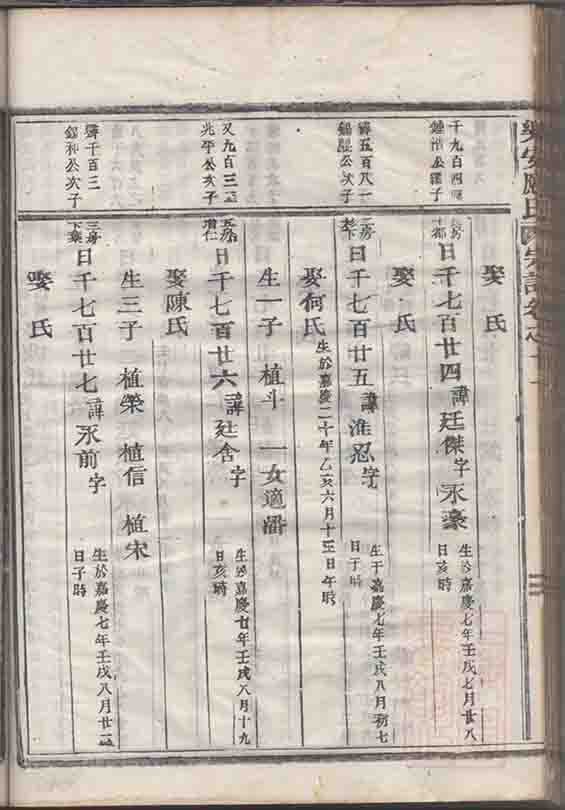 樂安
氏
宗譜卷之
娶 氏
千九百四
公
子
房
曰千七百廿四諱廷傑字永豪
生於嘉慶七年壬戌七月廿八
日亥時
娶 氏
五百八一
公次子
房
曰千七百廿五諱淮忍字
生于嘉慶七年壬戌八月初七
日子時
娶何氏
生於嘉慶二十年乙亥六月十三日午時
生一子 植斗 一女適潘
又九百三
兆平公次子
房
增仁
曰千七百廿六諱廷舍字
生於嘉慶七年壬戌八月十九
日亥時
娶陳氏
生三子 植榮 植信 植宋
千百三
公次子
三房
下葉
曰千七百廿七諱永前字
生於嘉慶七年壬戌八月廿二
日子時
娶 氏